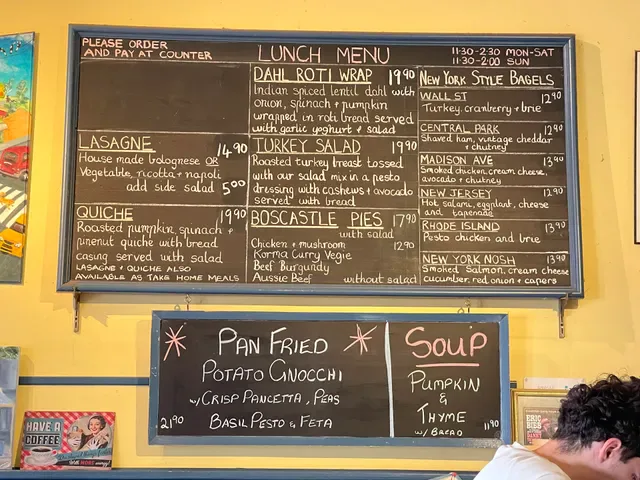 PLEASE ORDER
AND PAY AT COUNTER
LUNCH MENU
11·30-2·30 MON-SAT
11·30-2·00 SUN
LASAGNE 14.90
House made bolognese OR
Vegetable, ricotta + napoli
add side salad 5.00
QUICHE 19.90
Roasted pumpkin, spinach +
pinenut quiche with bread
casing served with salad
LASAGNE + QUICHE ALSO
AVAILABLE AS TAKE HOME MEALS
DAHL ROTI WRAP 19.90
Indian spiced lentil dahl with
onion, spinach + pumpkin
wrapped in roti bread served
with garlic yoghurt + salad
TURKEY SALAD 19.90
Roasted turkey breast tossed
with our salad mix in a pesto
dressing with cashews + avocado
served with bread
BOSCASTLE PIES 17.90
with salad
Chicken + mushroom 12.90
Korma Curry Vegie
Beef Burgundy
Aussie Beef without salad
NEW YORK STYLE BAGELS
WALL ST 12.90
Turkey, cranberry + brie
CENTRAL PARK 12.90
Shaved ham, vintage cheddar
+ chutney
MADISON AVE 13.90
Smoked chicken, cream cheese,
avocado + chutney
NEW JERSEY 12.90
Hot salami, eggplant, cheese
and tapenade
RHODE ISLAND 13.90
Pesto chicken and brie
NEW YORK NOSH 13.90
Smoked Salmon, cream cheese
cucumber, red onion + capers
PAN FRIED
POTATO GNOCCHI
w/ CRISP PANCETTA, PEAS
21.90 BASIL PESTO & FETA
SOUP
PUMPKIN
&
THYME
w/ BREAD 11.90
HAVE A
COFFEE
ERIC